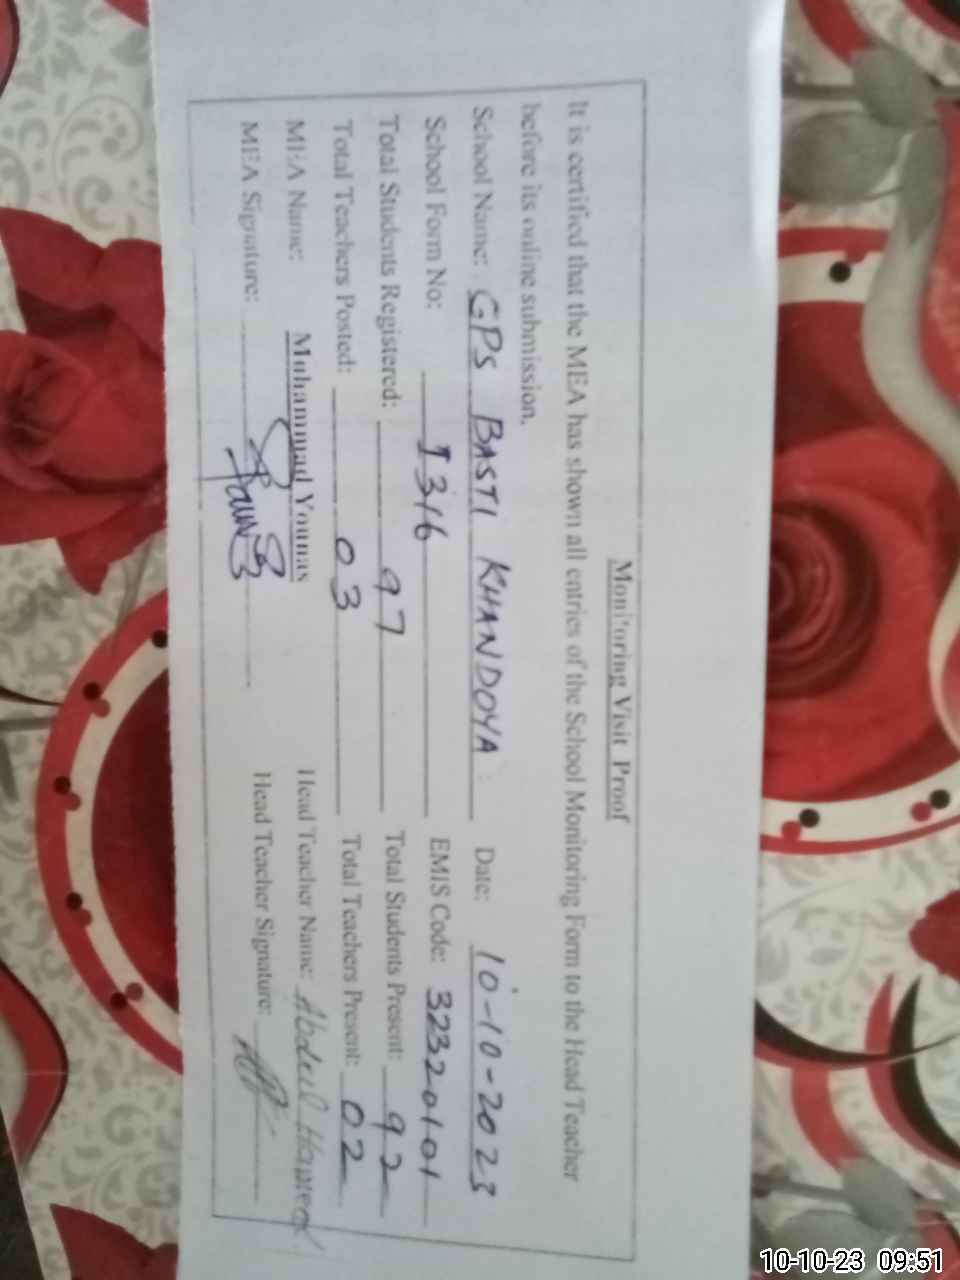 Monitoring Visit Proof
It is certified that the MEA has shown all entries of the School Monitoring Form to the Head Teacher
before its online submission.
School Name: GPS BASTI KHANDOYA Date: 10-10-2023
School Form No: 1316 EMIS Code: 32320101
Total Students Registered: 97 Total Students Present: 92
Total Teachers Posted: 03 Total Teachers Present: 02
MEA Name: Muhammad Younas Head Teacher Name: Abdul Hameed
MEA Signature: Head Teacher Signature:
10-10-23 09:51